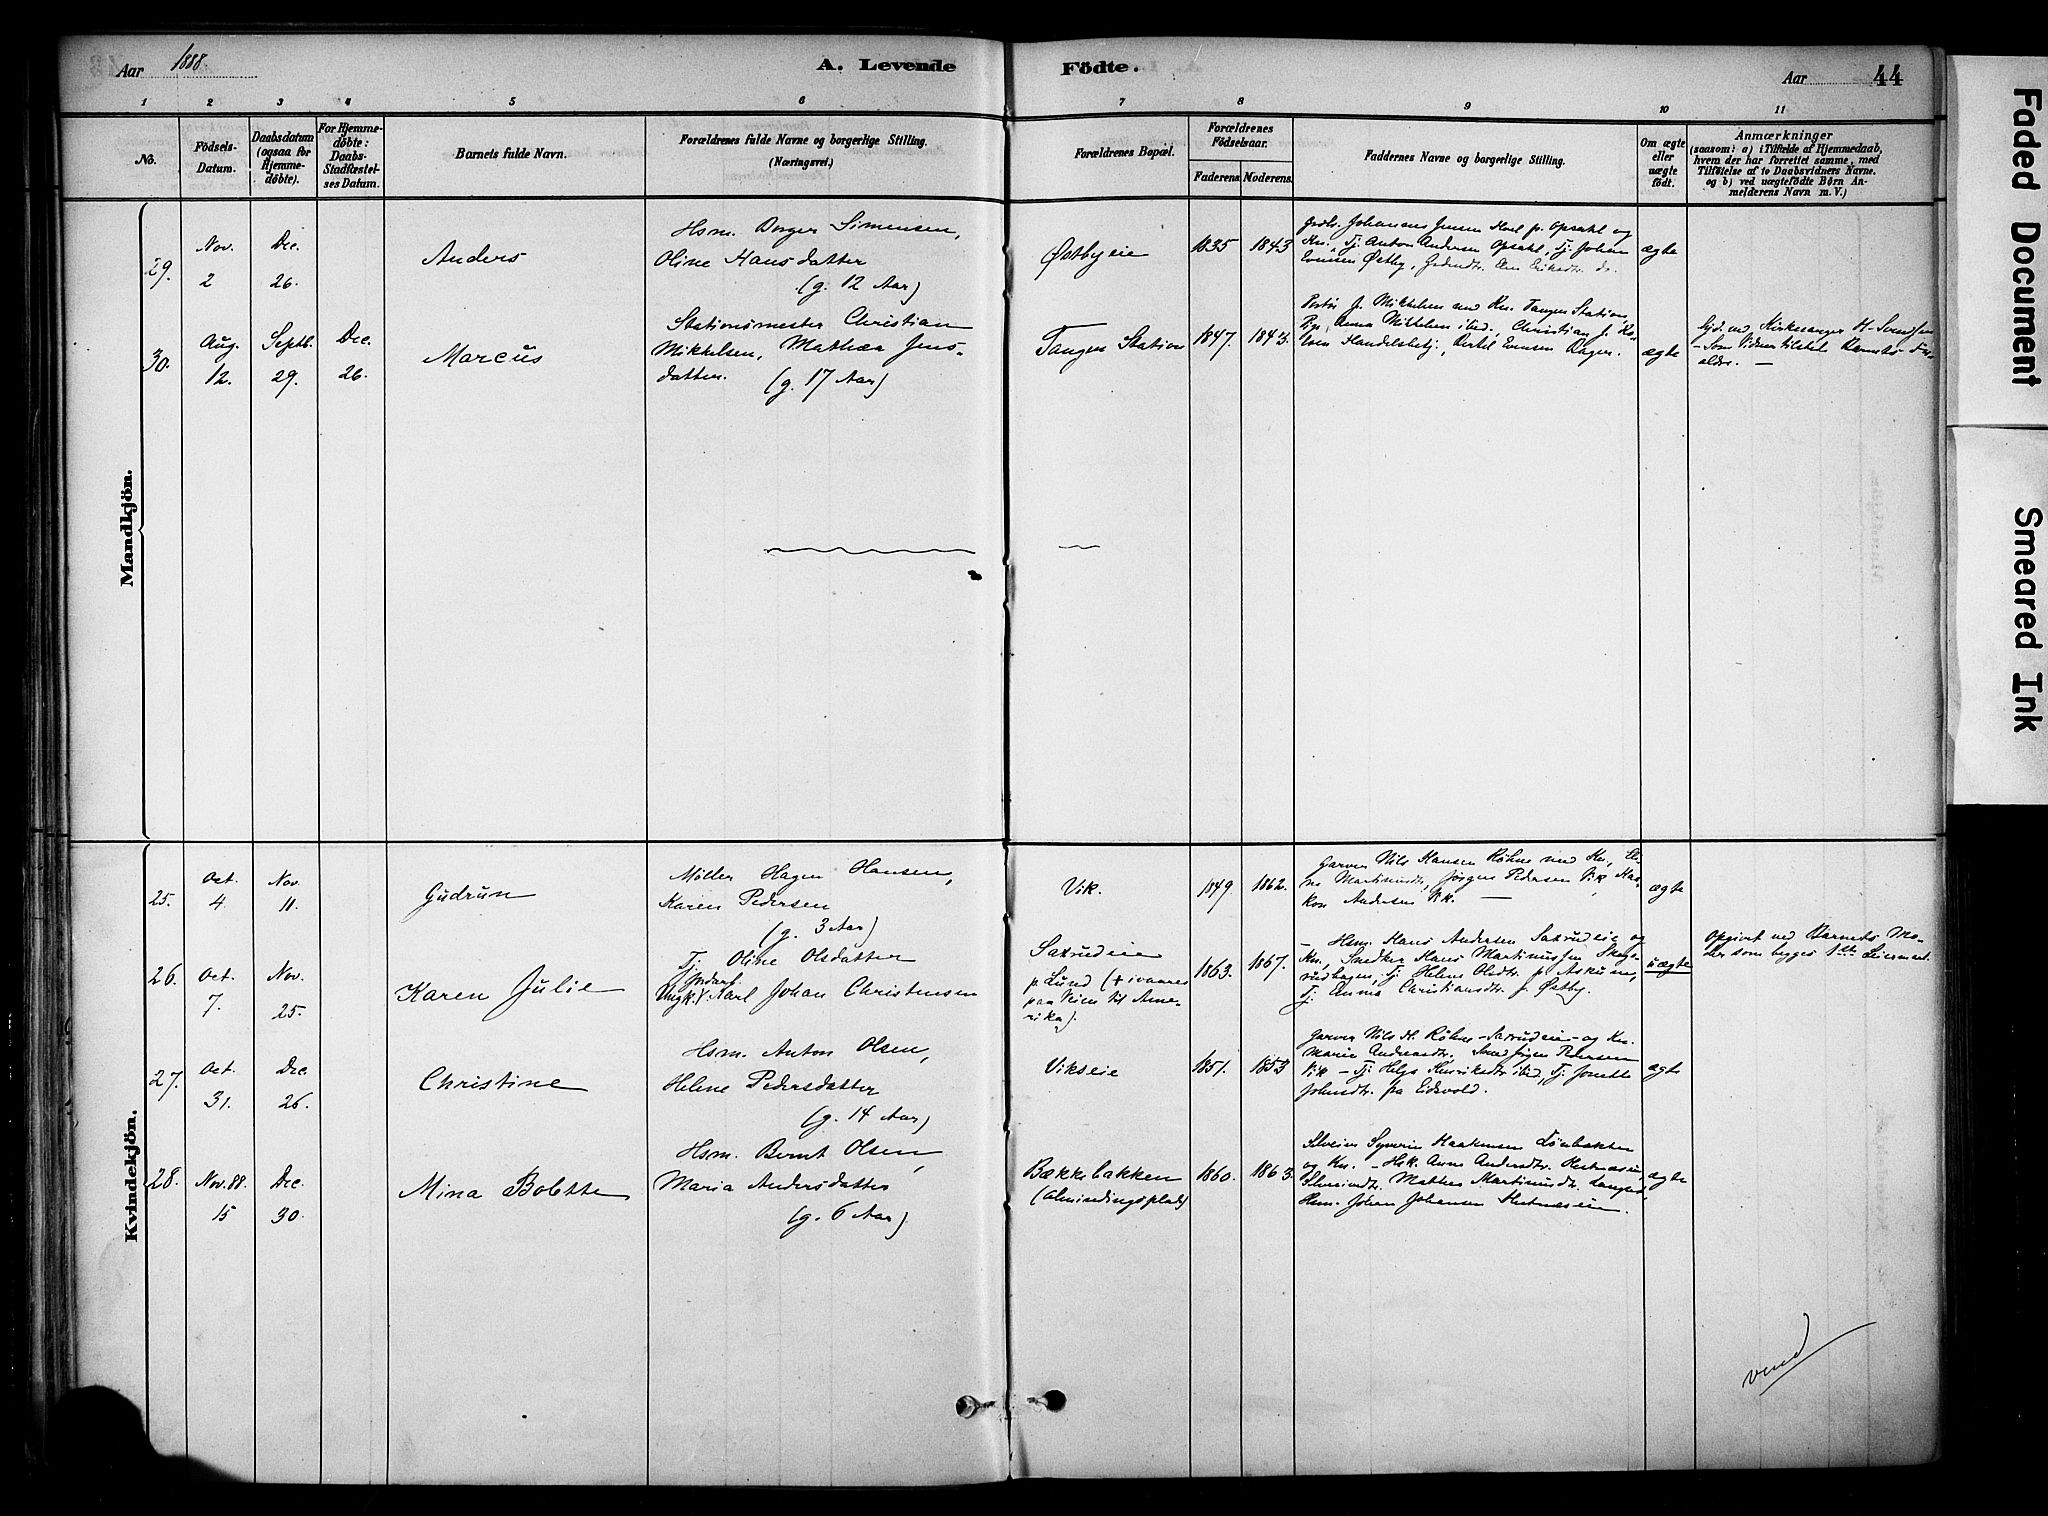 Aar 1888
A. Levende
Födte.
Aar 44
1 2 3 4 5 6 7 8 9 10 11
No.
Födsels-
Datum.
Daabsdatum
(ogsaa for
Hjemme-
döbte).
For Hjemme-
döbte:
Daabs-
Stadfæstel-
ses Datum.
Barnets fulde Navn.
Forældrenes fulde Navne og borgerlige Stilling.
(Næringsvei.)
Forældrenes Bopæl.
Forældrenes
Födselsaar.
Faderens. Moderens.
Faddernes Navne og borgerlige Stilling.
Om ægte
eller
uægte
födt.
Anmærkninger
(saasom: a) i Tilfælde af Hjemmedaab,
hvem der har forrettet samme, med
Tilföielse af to Daabsvidners Navne.
og b) ved uægtefödte Börn An-
melderens Navn m. V.)
Mandkjön.
29.
Nov.
2
Dec.
26.
Anders
Hsm. Borger Simensen,
Oline Hansdatter
(g. 12 Aar)
Østbyeie
1835 1843
Johannes Jensen Karl p. Opsahl og
Kn. Tj. Anton Andersen Opsahl, Tj. Johan
Evensen Østby,
ægte
30.
Aug.
12.
Septb.
29.
Dec.
26.
Marcus
Stationsmester Christian
Mikkelsen, Mathea Jens-
datter. (g. 17 Aar)
Tangen Station
1847. 1843.
J. Mikkelsen Kn. Tangen Station
Pige Anna Mikkelsen ibid., Christian J.
Handelsbetj., Evensen
ægte
Hjd. ved Kirkesanger H. Svendsen
- Som Vidner tilsted Barnets For-
ældre. -
Kvindekjön.
25.
Oct.
4
Nov.
11.
Gudrun
Möller Hagen Hansen,
Karen Pedersen
(g. 3 Aar)
Vik.
1849. 1862.
Garver Nils Hansen Röhne med Kn.,
Martinusdtr, Jörgen Pedersen Vik
Andersen Vik. -
ægte
26.
Oct.
7.
Nov.
25.
Karen Julie
Tj. Oline Olsdatter
Ungk. Karl Johan Christensen
Saxrudeie
p. Lund (+ ivaares
paa Veien til Ame-
rika).
1863. 1867.
- Hsm. Hans Andersen Saxrudeie og
Kn., Snedker Hans Martinussen
Tj. Helene Olsdtr. p.
Tj. Emma Christiansdtr. p. Østby.
uægte
Opgivet ved Barnets Mo-
der som begges 1ste Leiermaal.
27.
Oct.
31.
Dec
26.
Christine
Hsm. Anton Olsen,
Helene Pedersdatter
(g. 14 Aar)
Vikseie
1851. 1853
Garver Nils H. Röhne - Saxrudeie - og Kn.
Marie Andersdtr. Jörgen Pedersen
Vik - Tj. Helga Henriksdtr ibid, Tj. Jonette
Johnsdtr. fra Eidsvold.
ægte
28.
Nov. 88.
15
Dec.
30.
Mina Bolette
Hsm. Bernt Olsen,
Maria Andersdatter
(g. 6 Aar)
Bækkebakken
(Almindingsplads)
1860. 1863.
Syverin Haakensen
og Kn. - Anne Andersdtr.
Mathea Martinusdtr.
Hsm. Johan Johansen
ægte
vend
Faded Document
Smeared Ink